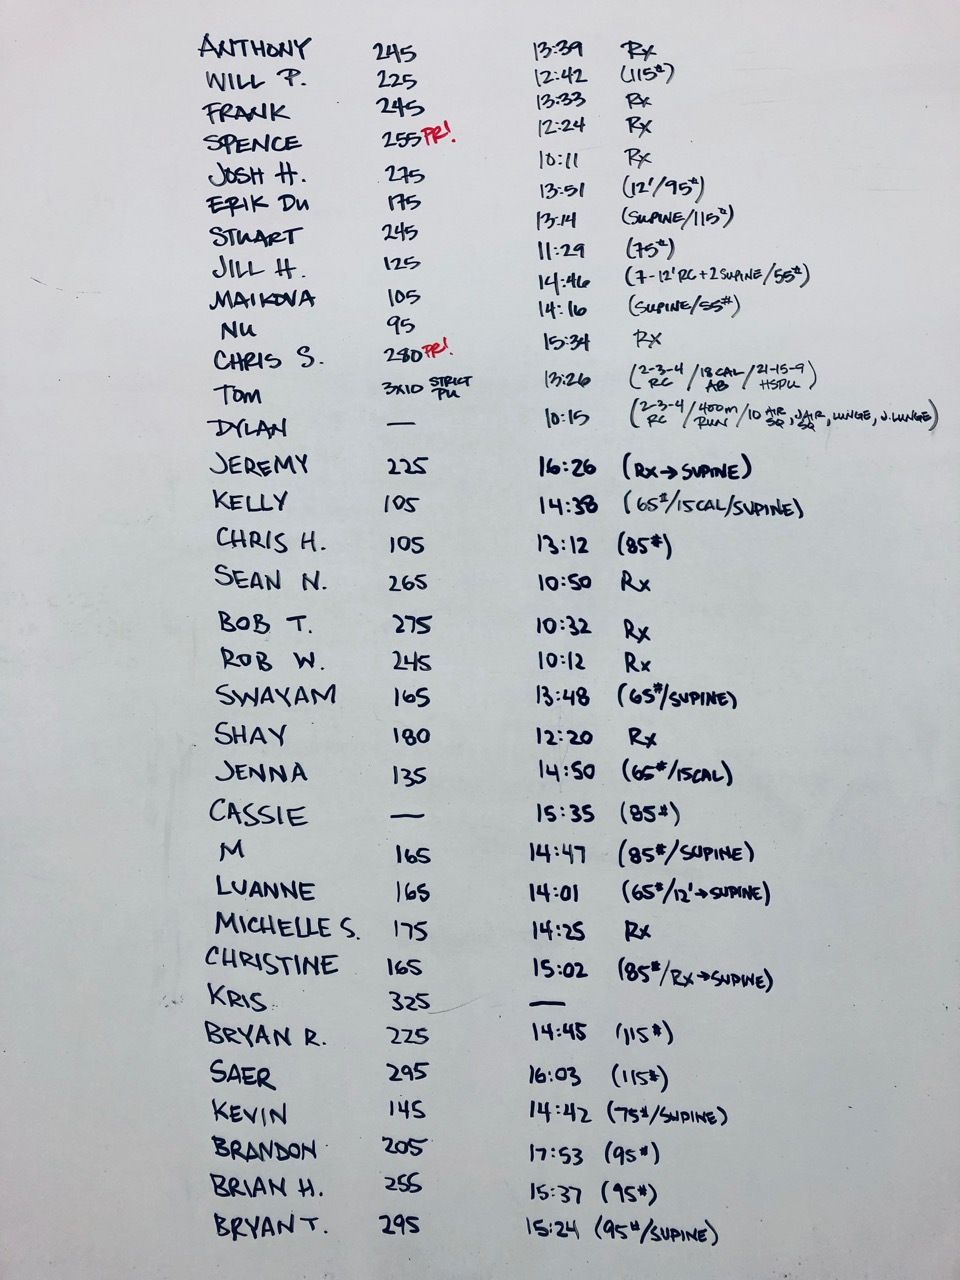 ANTHONY 245 13:39 Rx
WILL P. 225 12:42 (115#)
FRANK 245 13:33 Rx
SPENCE 255 PR! 12:24 Rx
JOSH H. 275 10:11 Rx
ERIK DU 175 13:51 (12'/95#)
STUART 245 13:14 (SUPINE/115#)
JILL H. 125 11:29 (75#)
MAIKOVA 105 14:46 (7-12' RC + 2 SUPINE/55#)
NU 95 14:16 (SUPINE/55#)
CHRIS S. 280 PR! 15:34 Rx
TOM 3X10 STRICT PU 13:26 (2-3-4 RC / 18 CAL AB / 21-15-9 HSPU)
DYLAN — 10:15 (2-3-4 RC / 400m RUN / 10 AIR SQ, J AIR SQ, LUNGE, J. LUNGE)
JEREMY 225 16:26 (Rx→SUPINE)
KELLY 105 14:38 (65#/15CAL/SUPINE)
CHRIS H. 105 13:12 (85#)
SEAN N. 265 10:50 Rx
BOB T. 275 10:32 Rx
ROB W. 245 10:12 Rx
SWAYAM 165 13:48 (65#/SUPINE)
SHAY 180 12:20 Rx
JENNA 135 14:50 (65#/15CAL)
CASSIE — 15:35 (85#)
M 165 14:47 (85#/SUPINE)
LUANNE 165 14:01 (65#/12'→SUPINE)
MICHELLE S. 175 14:25 Rx
CHRISTINE 165 15:02 (85#/Rx→SUPINE)
KRIS 325 —
BRYAN R. 225 14:45 (115#)
SAER 295 16:03 (115#)
KEVIN 145 14:42 (75#/SUPINE)
BRANDON 205 17:53 (95#)
BRIAN H. 255 15:37 (95#)
BRYAN T. 295 15:24 (95#/SUPINE)